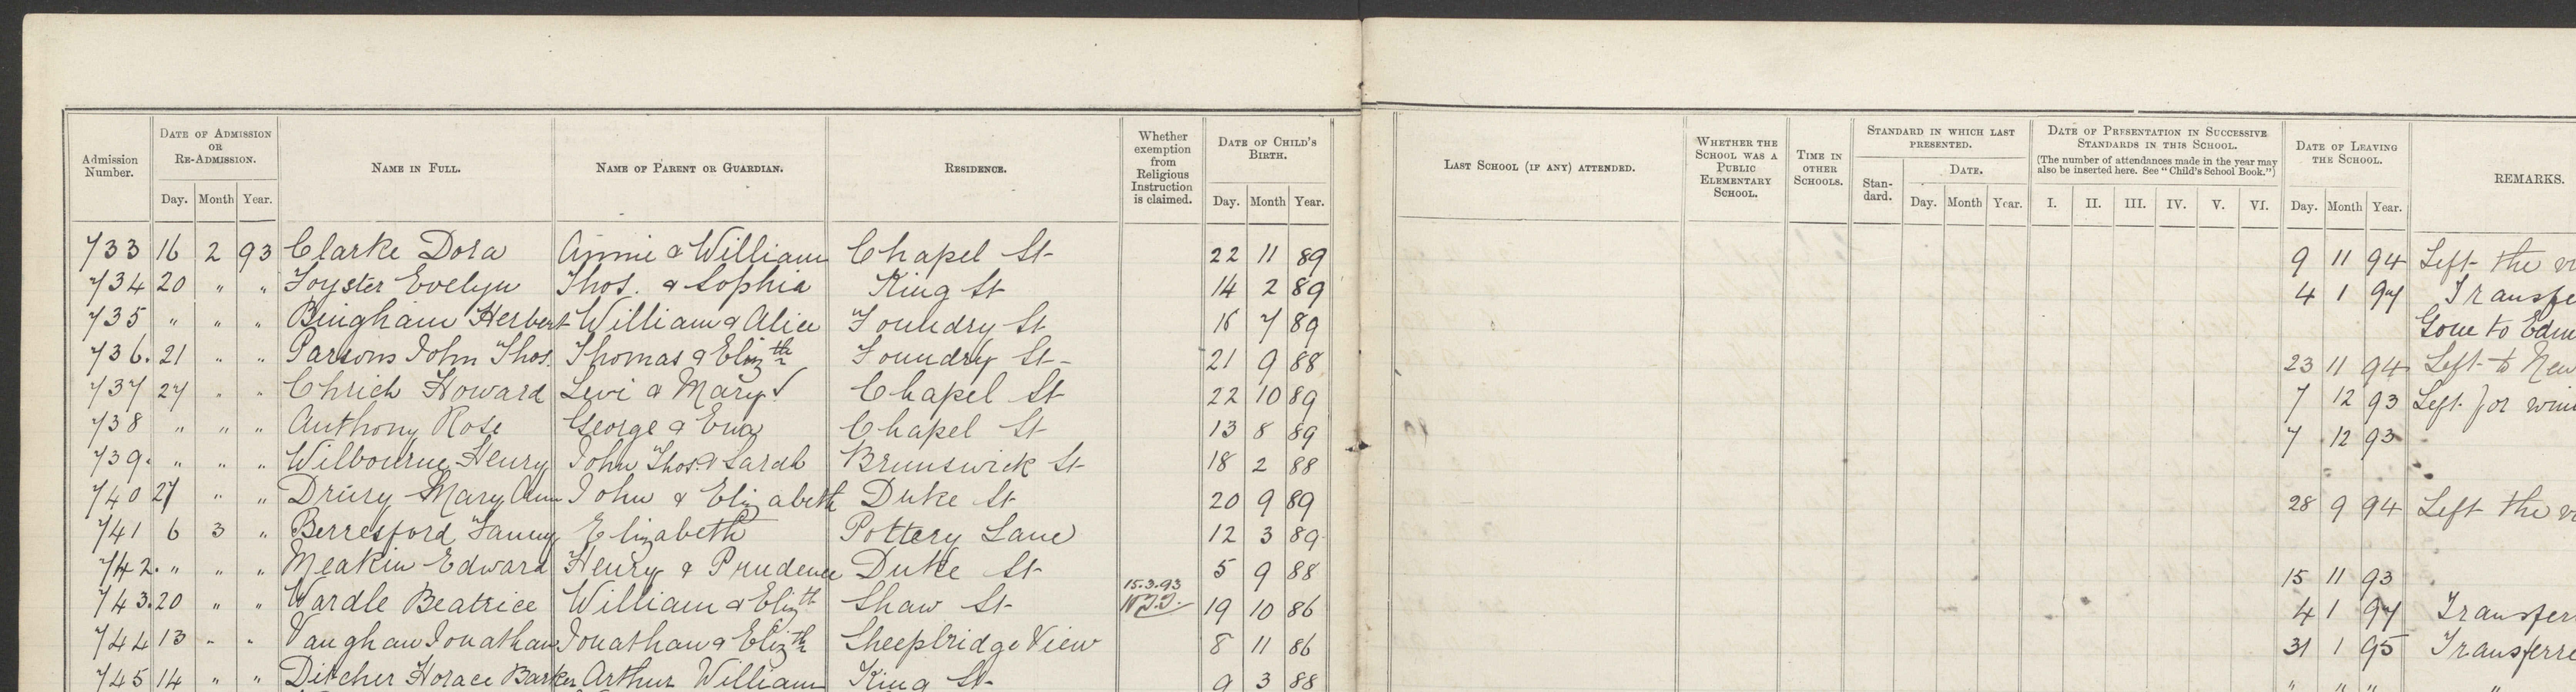 Admission Number.
DATE OF ADMISSION OR RE-ADMISSION.
Day. Month Year.
NAME IN FULL.
NAME OF PARENT OR GUARDIAN.
RESIDENCE.
Whether exemption from Religious Instruction is claimed.
DATE OF CHILD'S BIRTH.
Day. Month Year.
LAST SCHOOL (IF ANY) ATTENDED.
WHETHER THE SCHOOL WAS A PUBLIC ELEMENTARY SCHOOL.
TIME IN OTHER SCHOOLS.
STANDARD IN WHICH LAST PRESENTED.
Stan-dard.
DATE.
Day. Month Year.
DATE OF PRESENTATION IN SUCCESSIVE STANDARDS IN THIS SCHOOL.
(The number of attendances made in the year may also be inserted here. See "Child's School Book.")
I. II. III. IV. V. VI.
DATE OF LEAVING THE SCHOOL.
Day. Month Year.
REMARKS.
733 16 2 93 Clarke Dora Annie & William Chapel St 22 11 89 9 11 94 Left the
734 20 " " Foyster Evelyn Thos. & Sophia King St 14 2 89 4 1 97 Transfe
735 " " " Bingham Herbert William & Alice Foundry St 7 89 Gone to Edm
736. 21 " " Parsons John Thos. Thomas & Elizth Foundry St 21 9 88 23 11 94 Left to New
737 27 " " Chrich Howard Levi & Mary Chapel St 22 10 89 7 12 93 Left for
738 " " " Anthony Rose George & Eva Chapel St 13 8 89 7 12 93
739. " " " Wilbourne Henry John Thos. & Sarah Brunswick St 18 2 88
740 27 " " Drury Mary Ann John & Elizabeth Duke St 20 9 89 28 9 94 Left the
741 6 3 " Berresford Fanny Elizabeth Pottery Lane 12 3 89
742. " " " Meakin Edward Henry & Prudence Duke St 5 9 88 15 11 93
743. 20 " " Wardle Beatrice William & Elizth Shaw St 15.3.93 19 10 86 4 1 97 Transfer
744 13 " " Vaughan Jonathan Jonathan & Elizth Sheepbridge View 8 11 86 31 1 95 Transferre
745 14 " " Ditcher Horace Barker Arthur William King St 9 3 88 " " " "